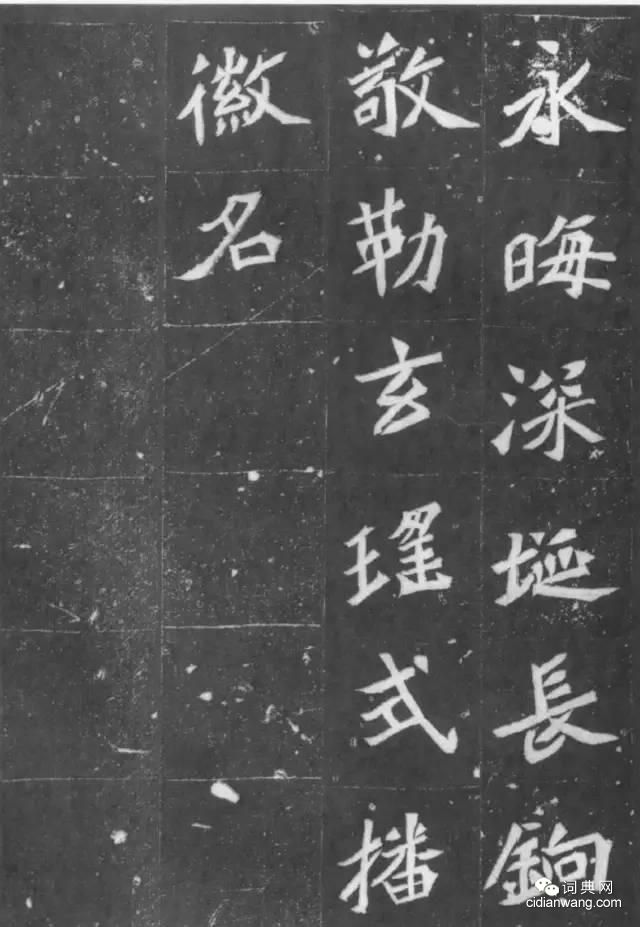 永晦深埏長鉤
敬勒玄瑤式播
徽名
词典网
cidianwang.com